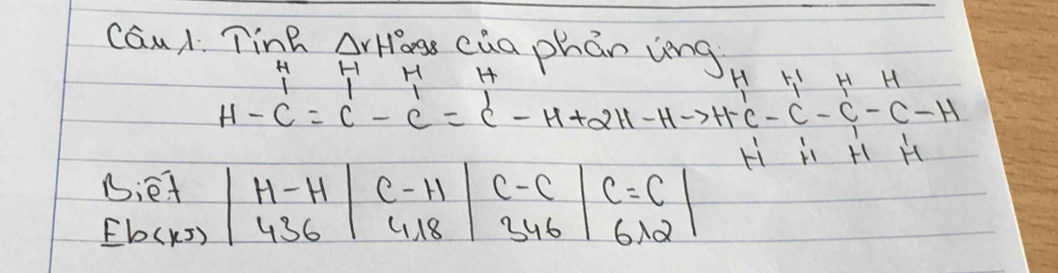 Câu 1. Tính ΔrH°298 của phản ứng:
H H H H H H H H
H - C = C - C = C - H + 2H - H -> H - C - C - C - C - H
H H H H
Biết | H - H | C - H | C - C | C = C |
Eb (KJ) | 436 | 418 | 346 | 612 |